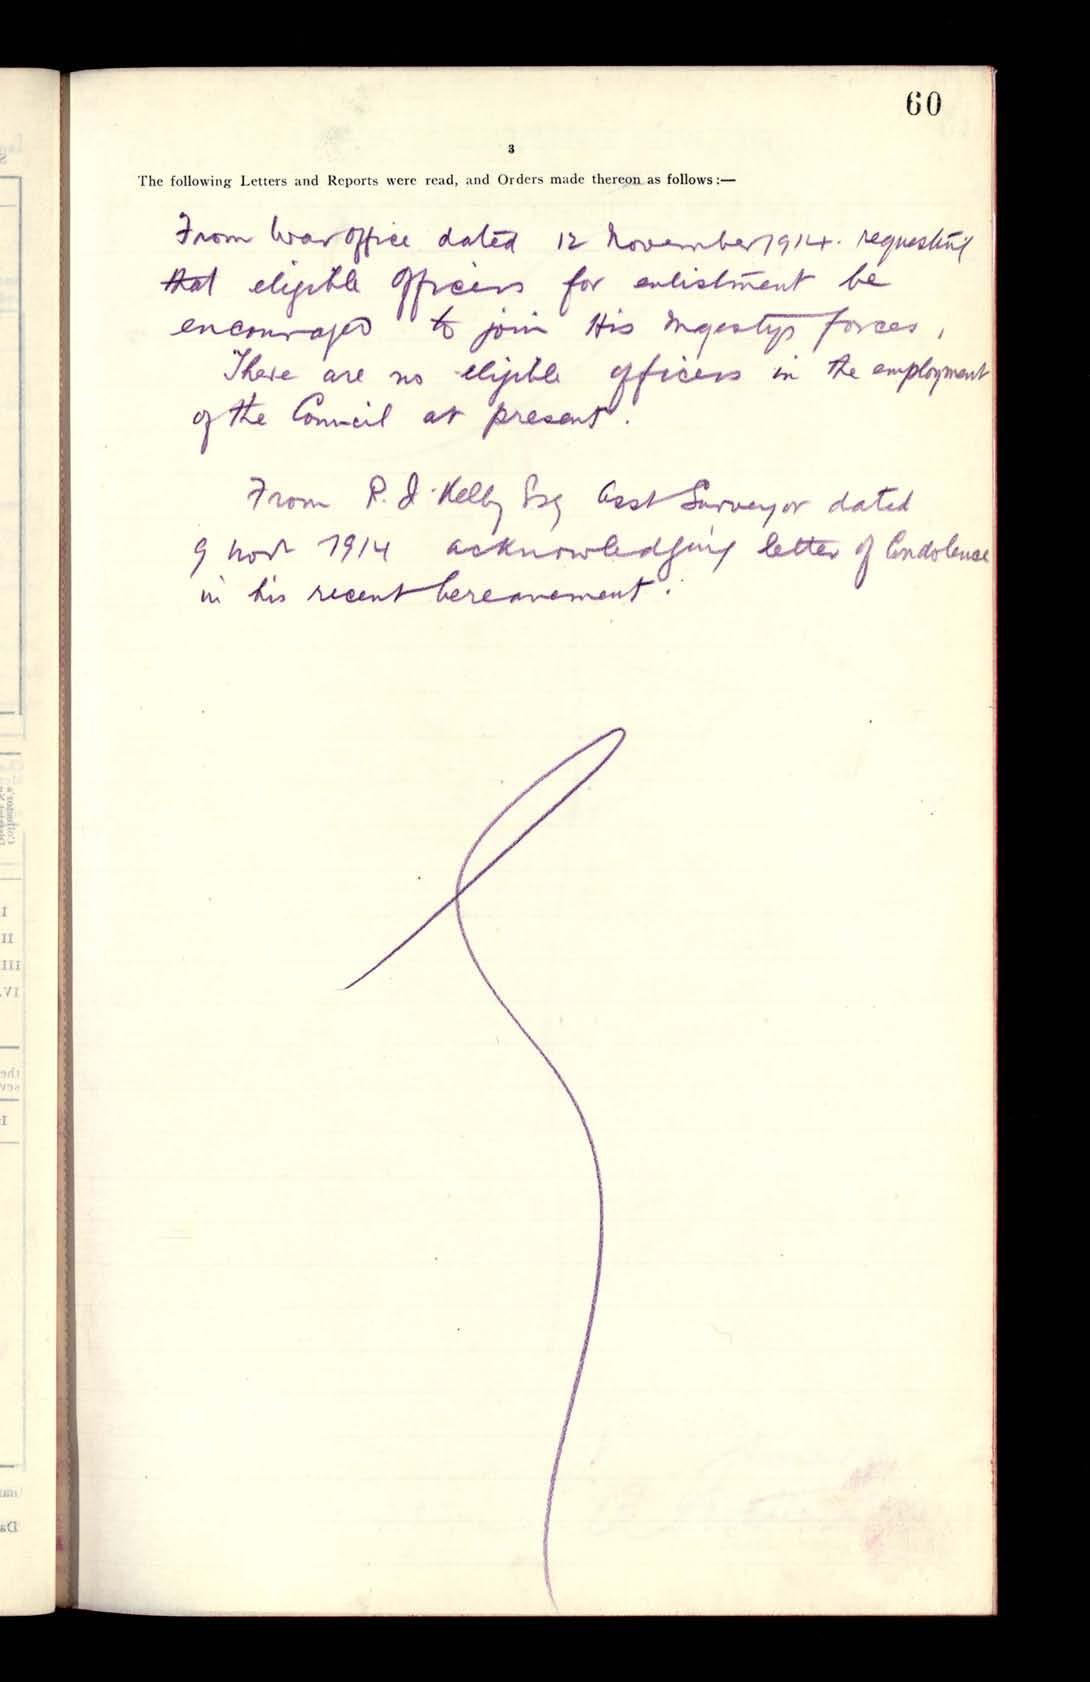 60
3
The following Letters and Reports were read, and Orders made thereon as follows:—
From War Office dated 12 November 1914. requesting
that eligible Officers for enlistment be
encouraged to join His Majestys forces,
There are no eligible officers in the employment
of the Council at present.
From P. J. Kelly Esq Asst Surveyor dated
9 Novr 1914 acknowledging letter of Condolence
in his recent bereavement.
I
II
III
IV.
the
sev
I
Da